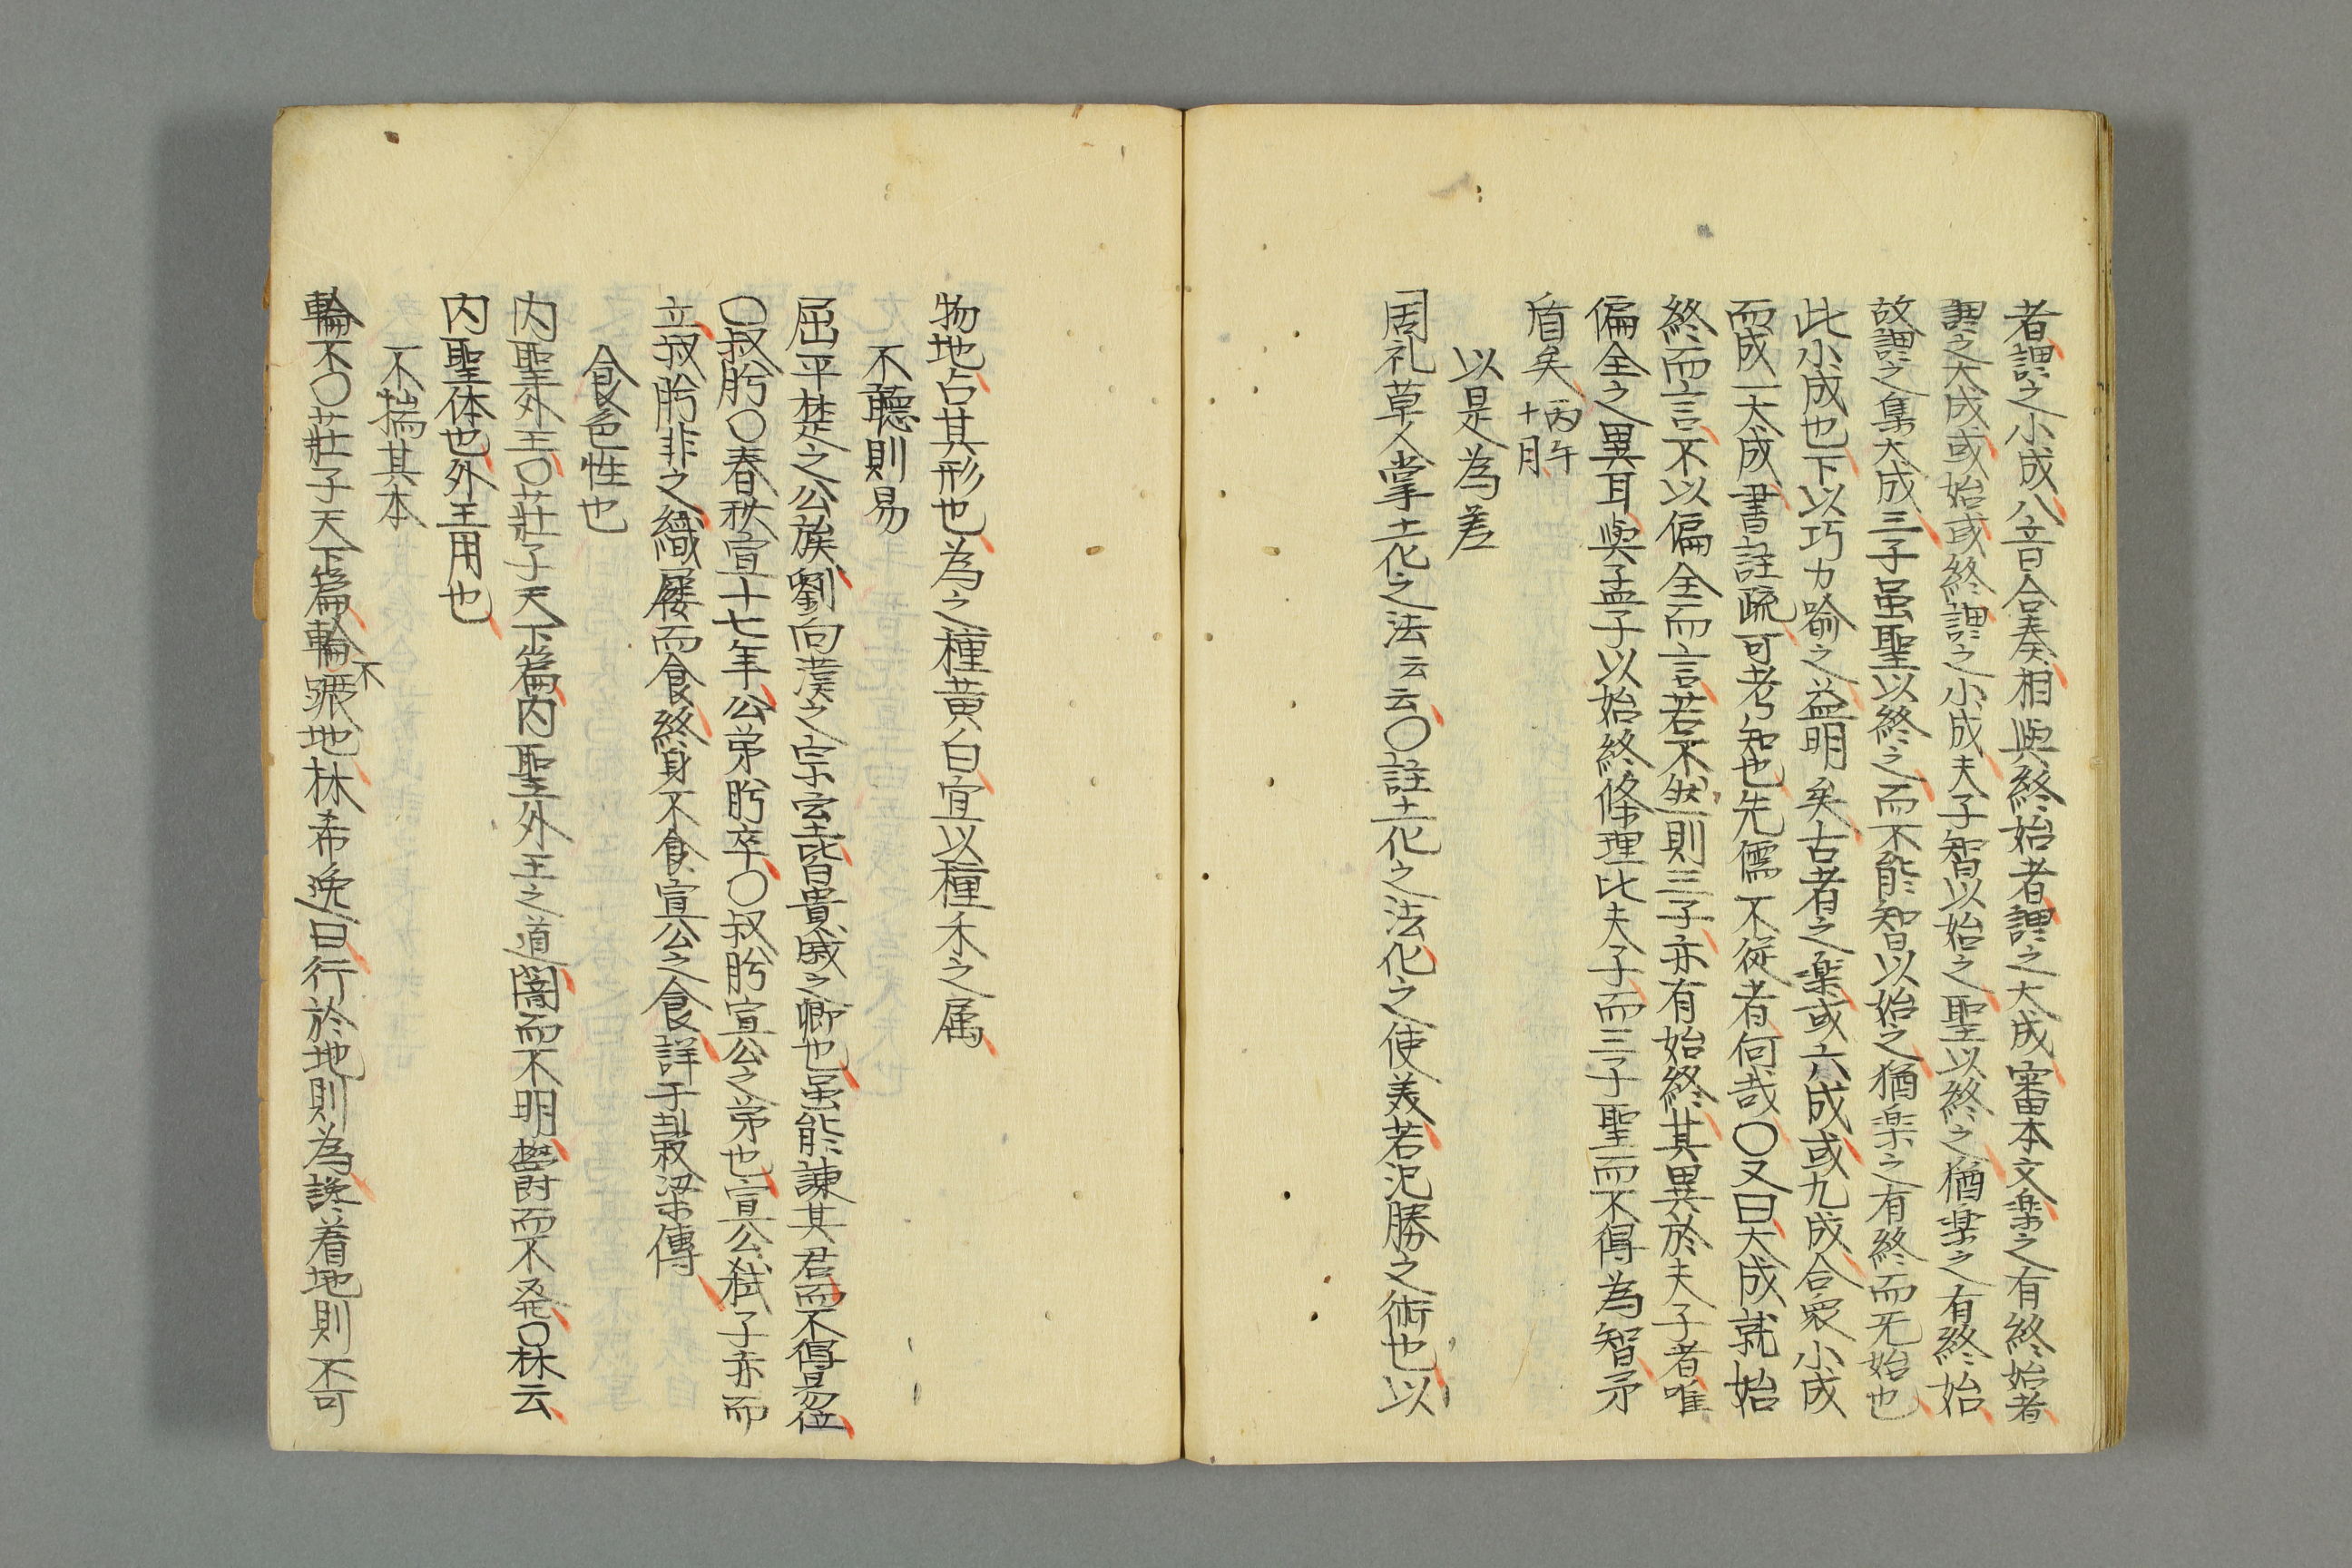 者謂之小成八音合奏相與終始者謂之大成審本文楽之有終始者
謂之大成或始或終謂之小成夫子智以始之聖以終之猶楽之有終始
故謂之集大成三子虽聖以終之而不能智以始之猶楽之有終而无始也
此小成也下以巧力喻之益明矣古者之楽或六成或九成合衆小成
而成一大成書註疏可考知也先儒不従者何哉〇又曰大成就始
終而言不以偏全而言若不然則三子亦有始終其異於夫子者唯
偏全之異耳與孟子以始終條理比夫子而三子聖而不得為智矛
盾矣 丙午
十月
以是為差
周礼草人掌土化之法云云〇註土化之法化之使美若氾勝之術也以
物地占其形也為之種黄白宜以種禾之属
不聽則易
屈平楚之公族劉向漢之宗室皆貴戚之卿也虽能諫其君而不得易位
〇叔肹〇春秋宣十七年公弟肹卒〇叔肹宣公之弟也宣公弑子赤而
立叔肹非之織屨而食終身不食宣公之食詳于穀梁傳
食色性也
内聖外王〇莊子天下篇内聖外王之道闇而不明鬱而不発〇林云
内聖体也外王用也
不揣其本
輪不〇莊子天下篇輪不蹍地林希逸曰行於地則為轍着地則不可